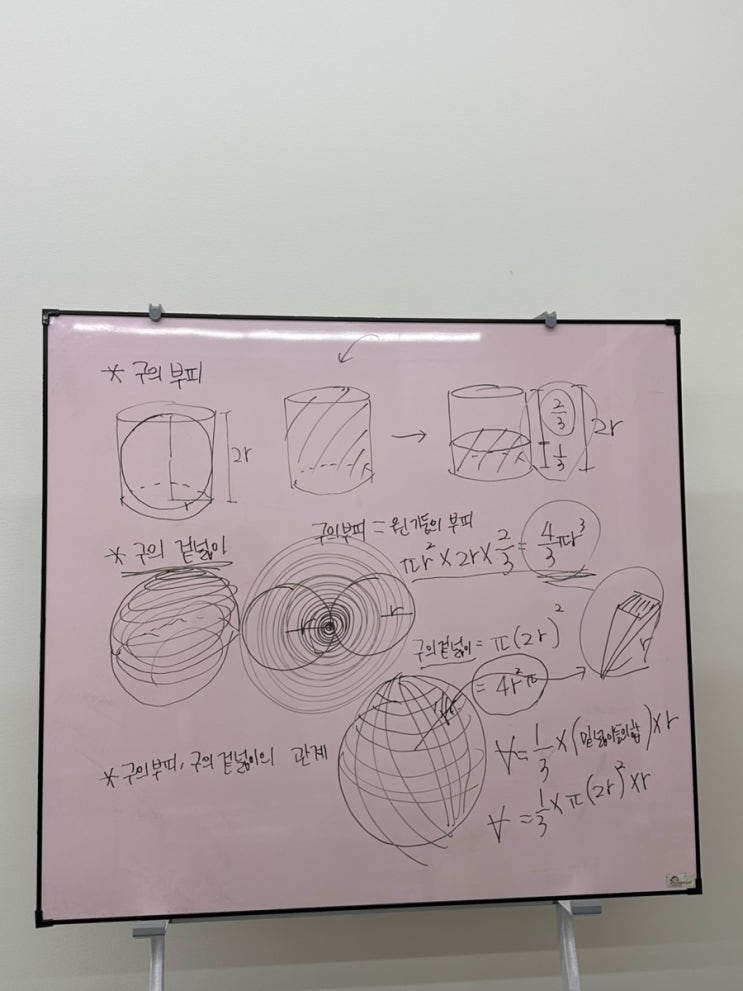 * 구의 부피
2r
r
2/3
1/3
2r
구의 부피 = 원기둥의 부피
πr² × 2r × 2/3 = 4/3 πr³
* 구의 겉넓이
r
r
구의 겉넓이 = π(2r)²
= 4r²π
r
* 구의 부피, 구의 겉넓이의 관계
V = 1/3 × (밑넓이들의 합) × r
V = 1/3 × π(2r)² × r